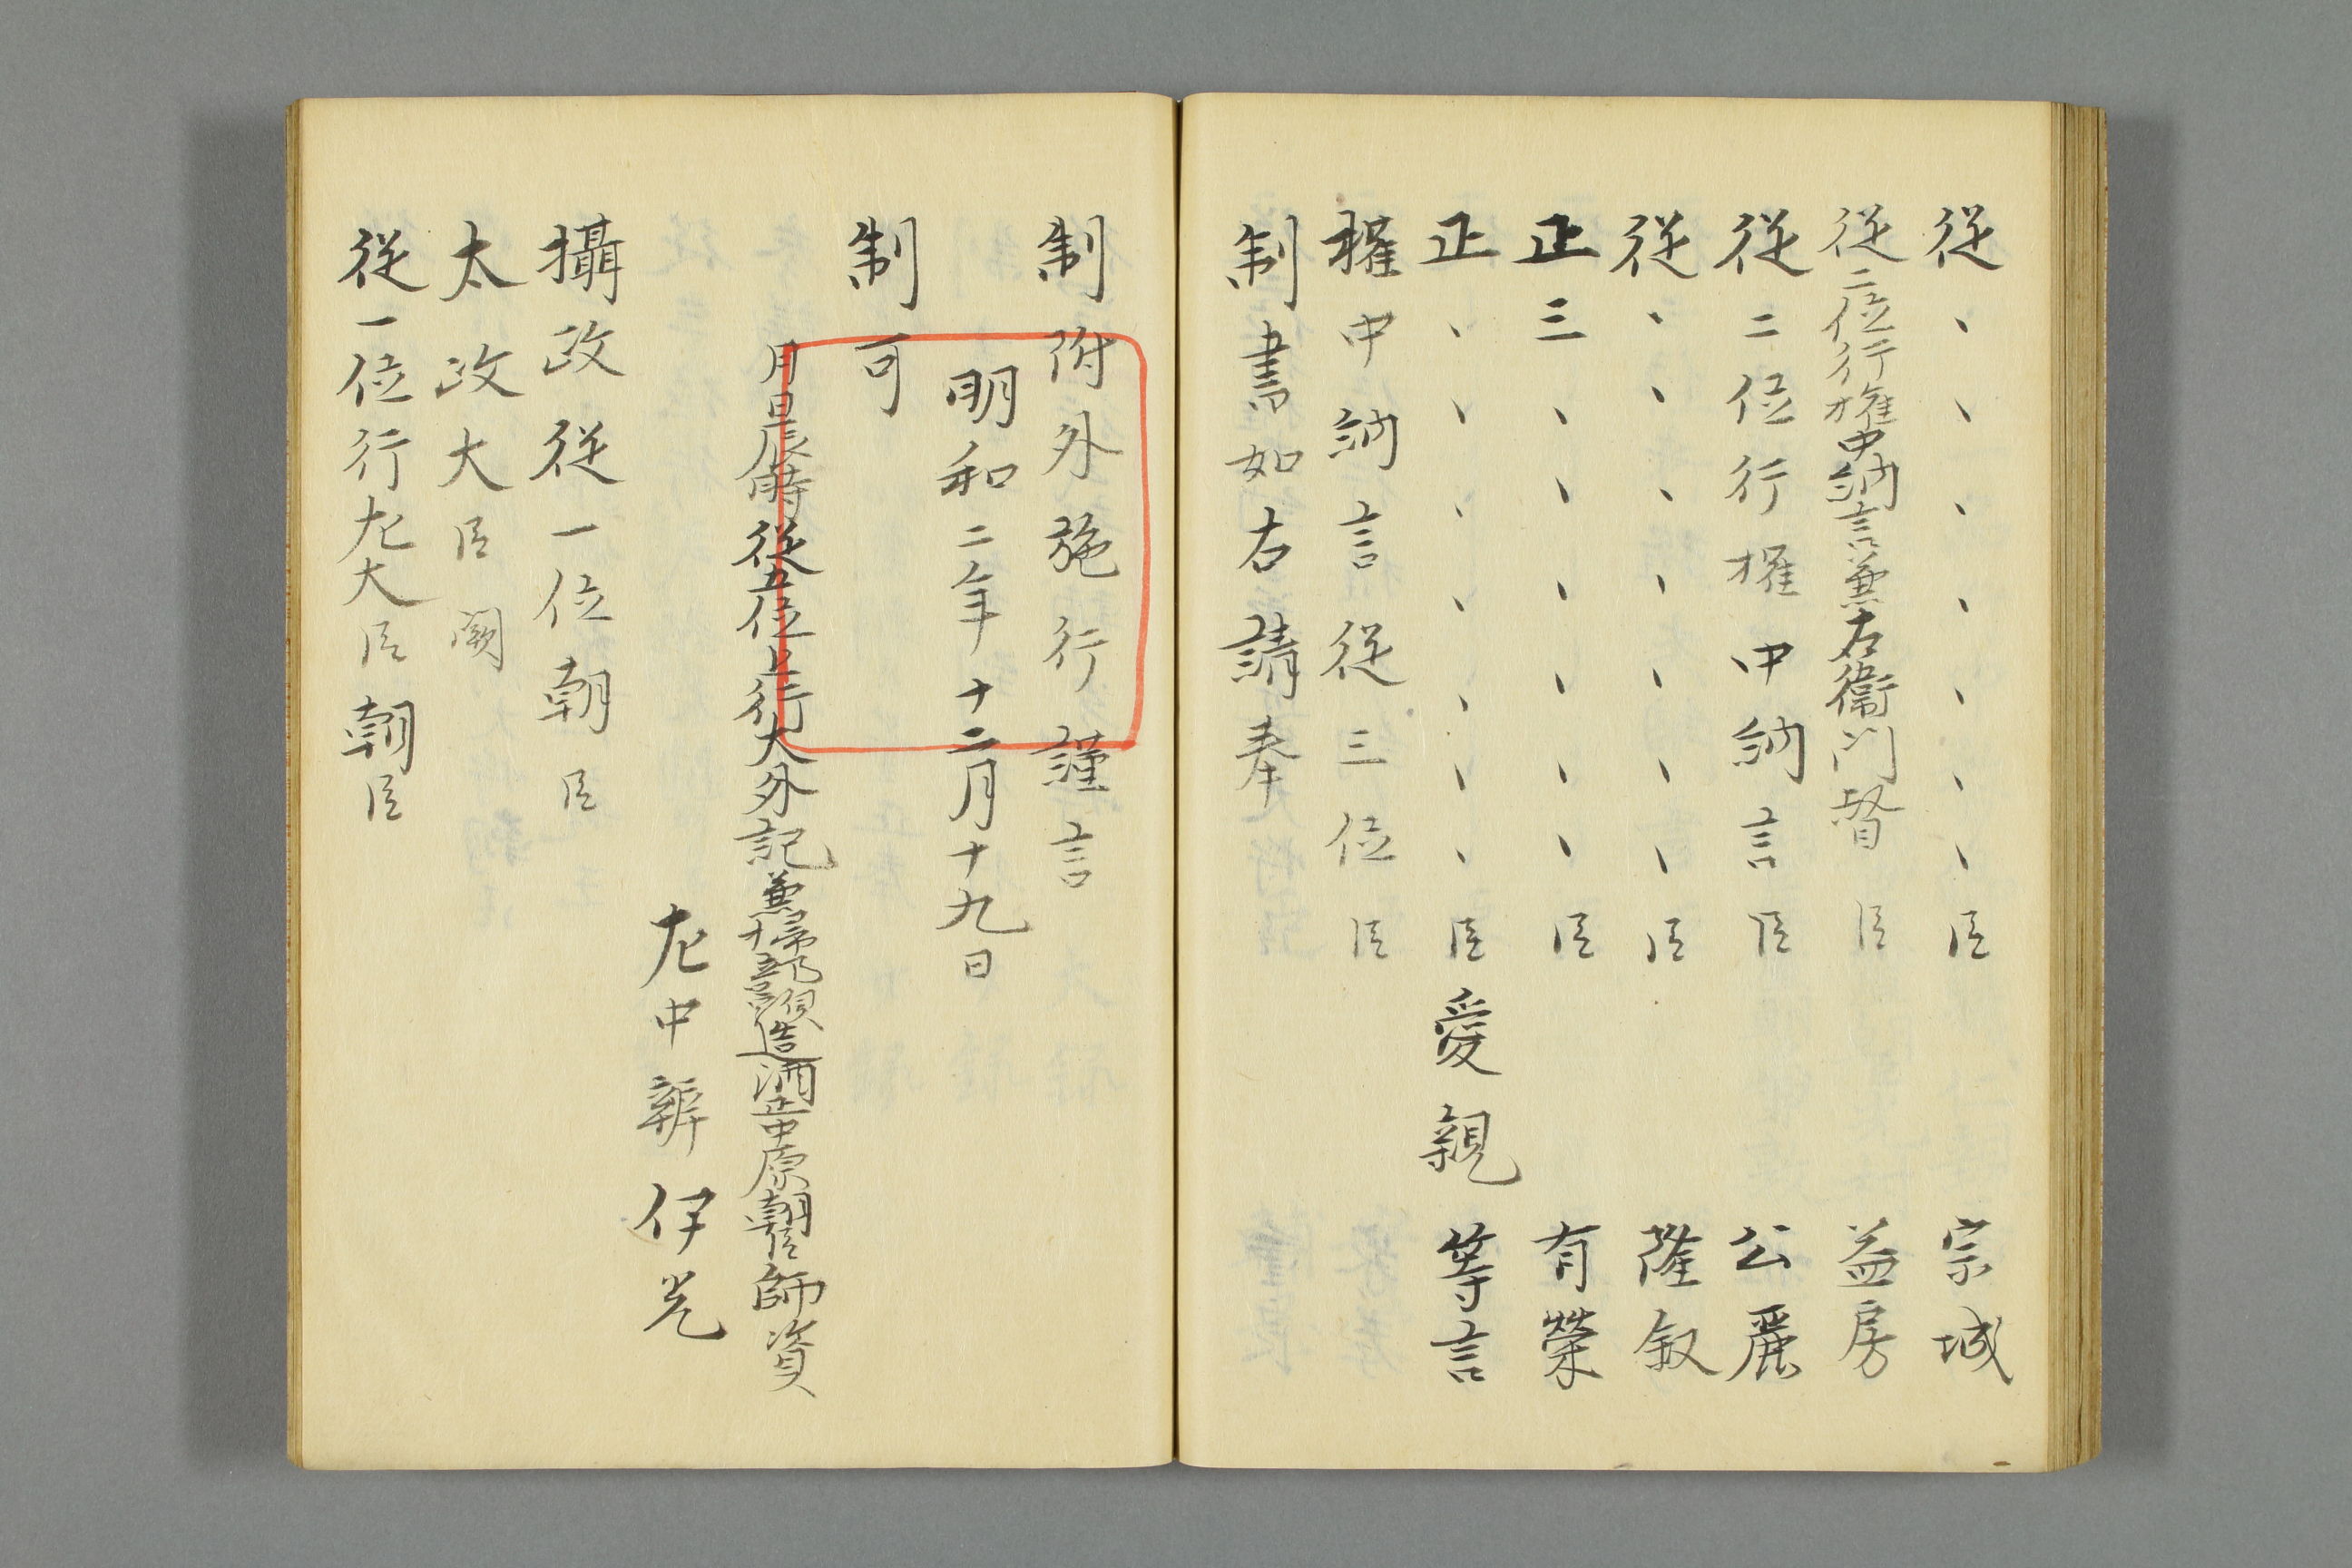 従、、、、、、臣 宗城
従二位行権中納言兼右衛門督臣 益房
従二位行権中納言臣 公麗
従、、、、、、臣 隆叙
正三、、、、、臣 有榮
正、、、、、、臣愛親等言
権中納言従三位臣
制書如右請奉
制附外施行謹言
明和二年十二月十九日
制可
月日辰時従五位上行大外記兼掃部頭造酒正中原朝臣師資
左中辨伊光
攝政従一位朝臣
太政大臣闕
従一位行左大臣朝臣